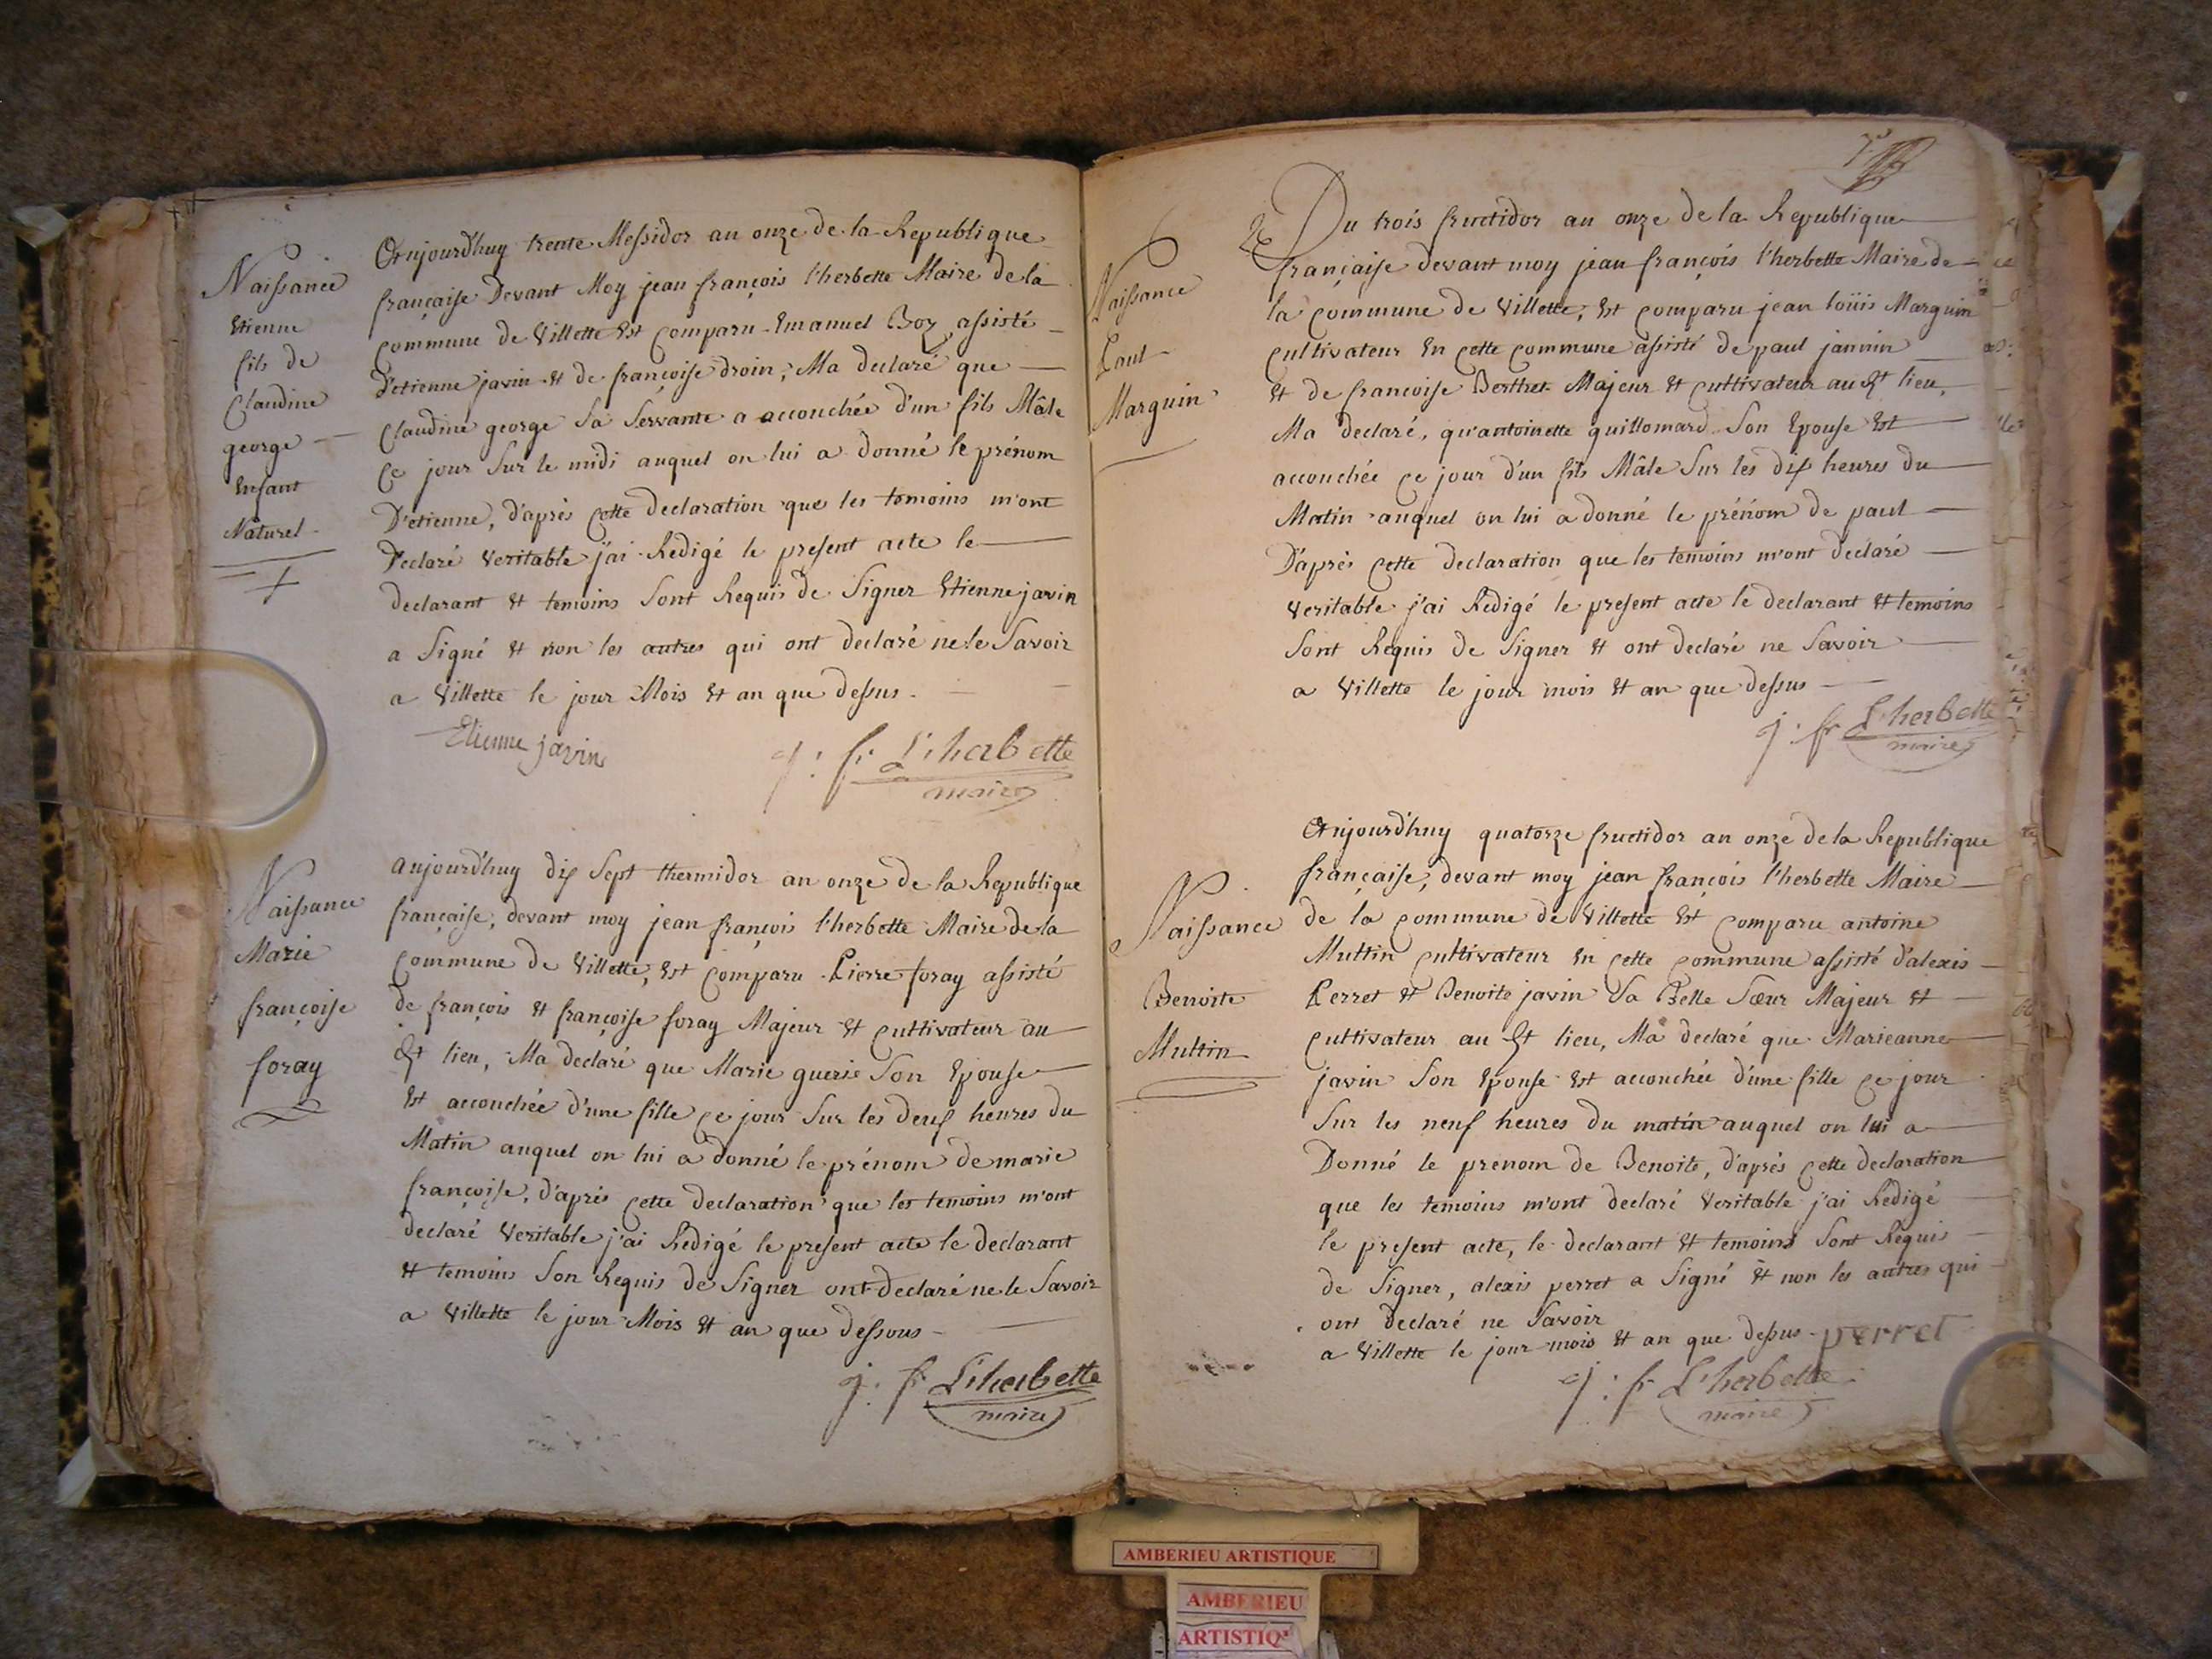 Naissance
Etienne
fils de
Claudine
george
Enfant
Naturel
Aujourd'huy trente Messidor an onze de la Republique
française Devant Moy jean françois l'herbette Maire de la
Commune de Villette Est Comparu Emanuel Boz assisté
D'etienne javin et de françoise droin, Ma declaré que
Claudine george Sa Servante a accouchée d'un fils Mâle
Ce jour Sur le midi auquel on lui a donné le prénom
D'etienne, d'après Cette declaration que les temoins m'ont
Declaré Veritable j'ai Redigé le present acte le
declarant et temoins Sont Requis de Signer Etienne javin
a Signé et non les autres qui ont declaré ne le Savoir
a Villette le jour Mois et an que dessus.
Etienne javin
j: f: L'herbette
maire
Naissance
Marie
françoise
foray
aujourd'huy dix Sept thermidor an onze de la Republique
française, devant moy jean françois l'herbette Maire de la
Commune de Villette, Est Comparu Pierre foray assisté
de françois et françoise foray Majeur et Cultivateur au
dt lieu, Ma declaré que Marie guerie Son Epouse
Est accouchée d'une fille Ce jour Sur les deux heures du
Matin auquel on lui a donné le prénom de marie
françoise, d'après Cette declaration que les temoins m'ont
declaré Veritable j'ai Redigé le present acte le declarant
et temoins Son Requis de Signer ont declaré ne le Savoir
a Villette le jour Mois et an que dessous
j: fr L'herbette
maire
Naissance
Paul
Marguin
Du trois fructidor an onze de la Republique
française devant moy jean françois l'herbette Maire de
la Commune de Villette, Est Comparu jean loüis Marguin
Cultivateur En Cette Commune assisté de paul jannin
et de francoise Berthet Majeur et Cultivateur au dt lieu,
Ma declaré, qu'antoinette guillomard Son Epouse Est
accouchée Ce jour d'un fils Mâle Sur les dix heures du
Matin auquel on lui a donné le prénom de paul
D'après Cette declaration que les temoins m'ont declaré
Veritable j'ai Redigé le present acte le declarant et temoins
Sont Requis de Signer et ont declaré ne Savoir
a Villette le jour mois et an que dessus
j: fr L'herbette
maire
Naissance
Benoite
Multin
Aujourd'huy quatorze fructidor an onze de la Republique
française, devant moy jean françois l'herbette Maire
de la Commune de Villette Est Comparu antoine
Multin Cultivateur En Cette Commune assisté d'alexis
Perret et Benoite javin Sa Belle Sœur Majeur et
Cultivateur au dt lieu, Ma declaré que Marieanne
javin Son Epouse Est accouchée d'une fille Ce jour
Sur les neuf heures du matin auquel on lui a
Donné le prenom de Benoite, d'après Cette declaration
que les temoins m'ont declaré Veritable j'ai Redigé
le present acte, le declarant et temoins Sont Requis
de Signer, alexis perret a Signé et non les autres qui
ont declaré ne Savoir
a Villette le jour mois et an que dessus
perret
j: fr L'herbette
maire
AMBERIEU ARTISTIQUE
AMBERIEU
ARTISTIQ